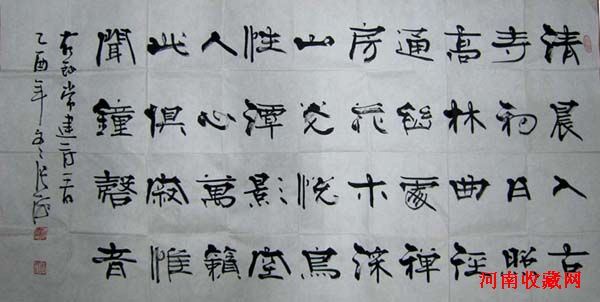 清晨入古
寺初日照
高林曲径
通幽處禅
房花木深
山光悦鳥
性潭影空
人心萬籟
此俱寂惟
聞鐘磬音
右录常建诗一首
乙酉年冬张海
河南收藏网